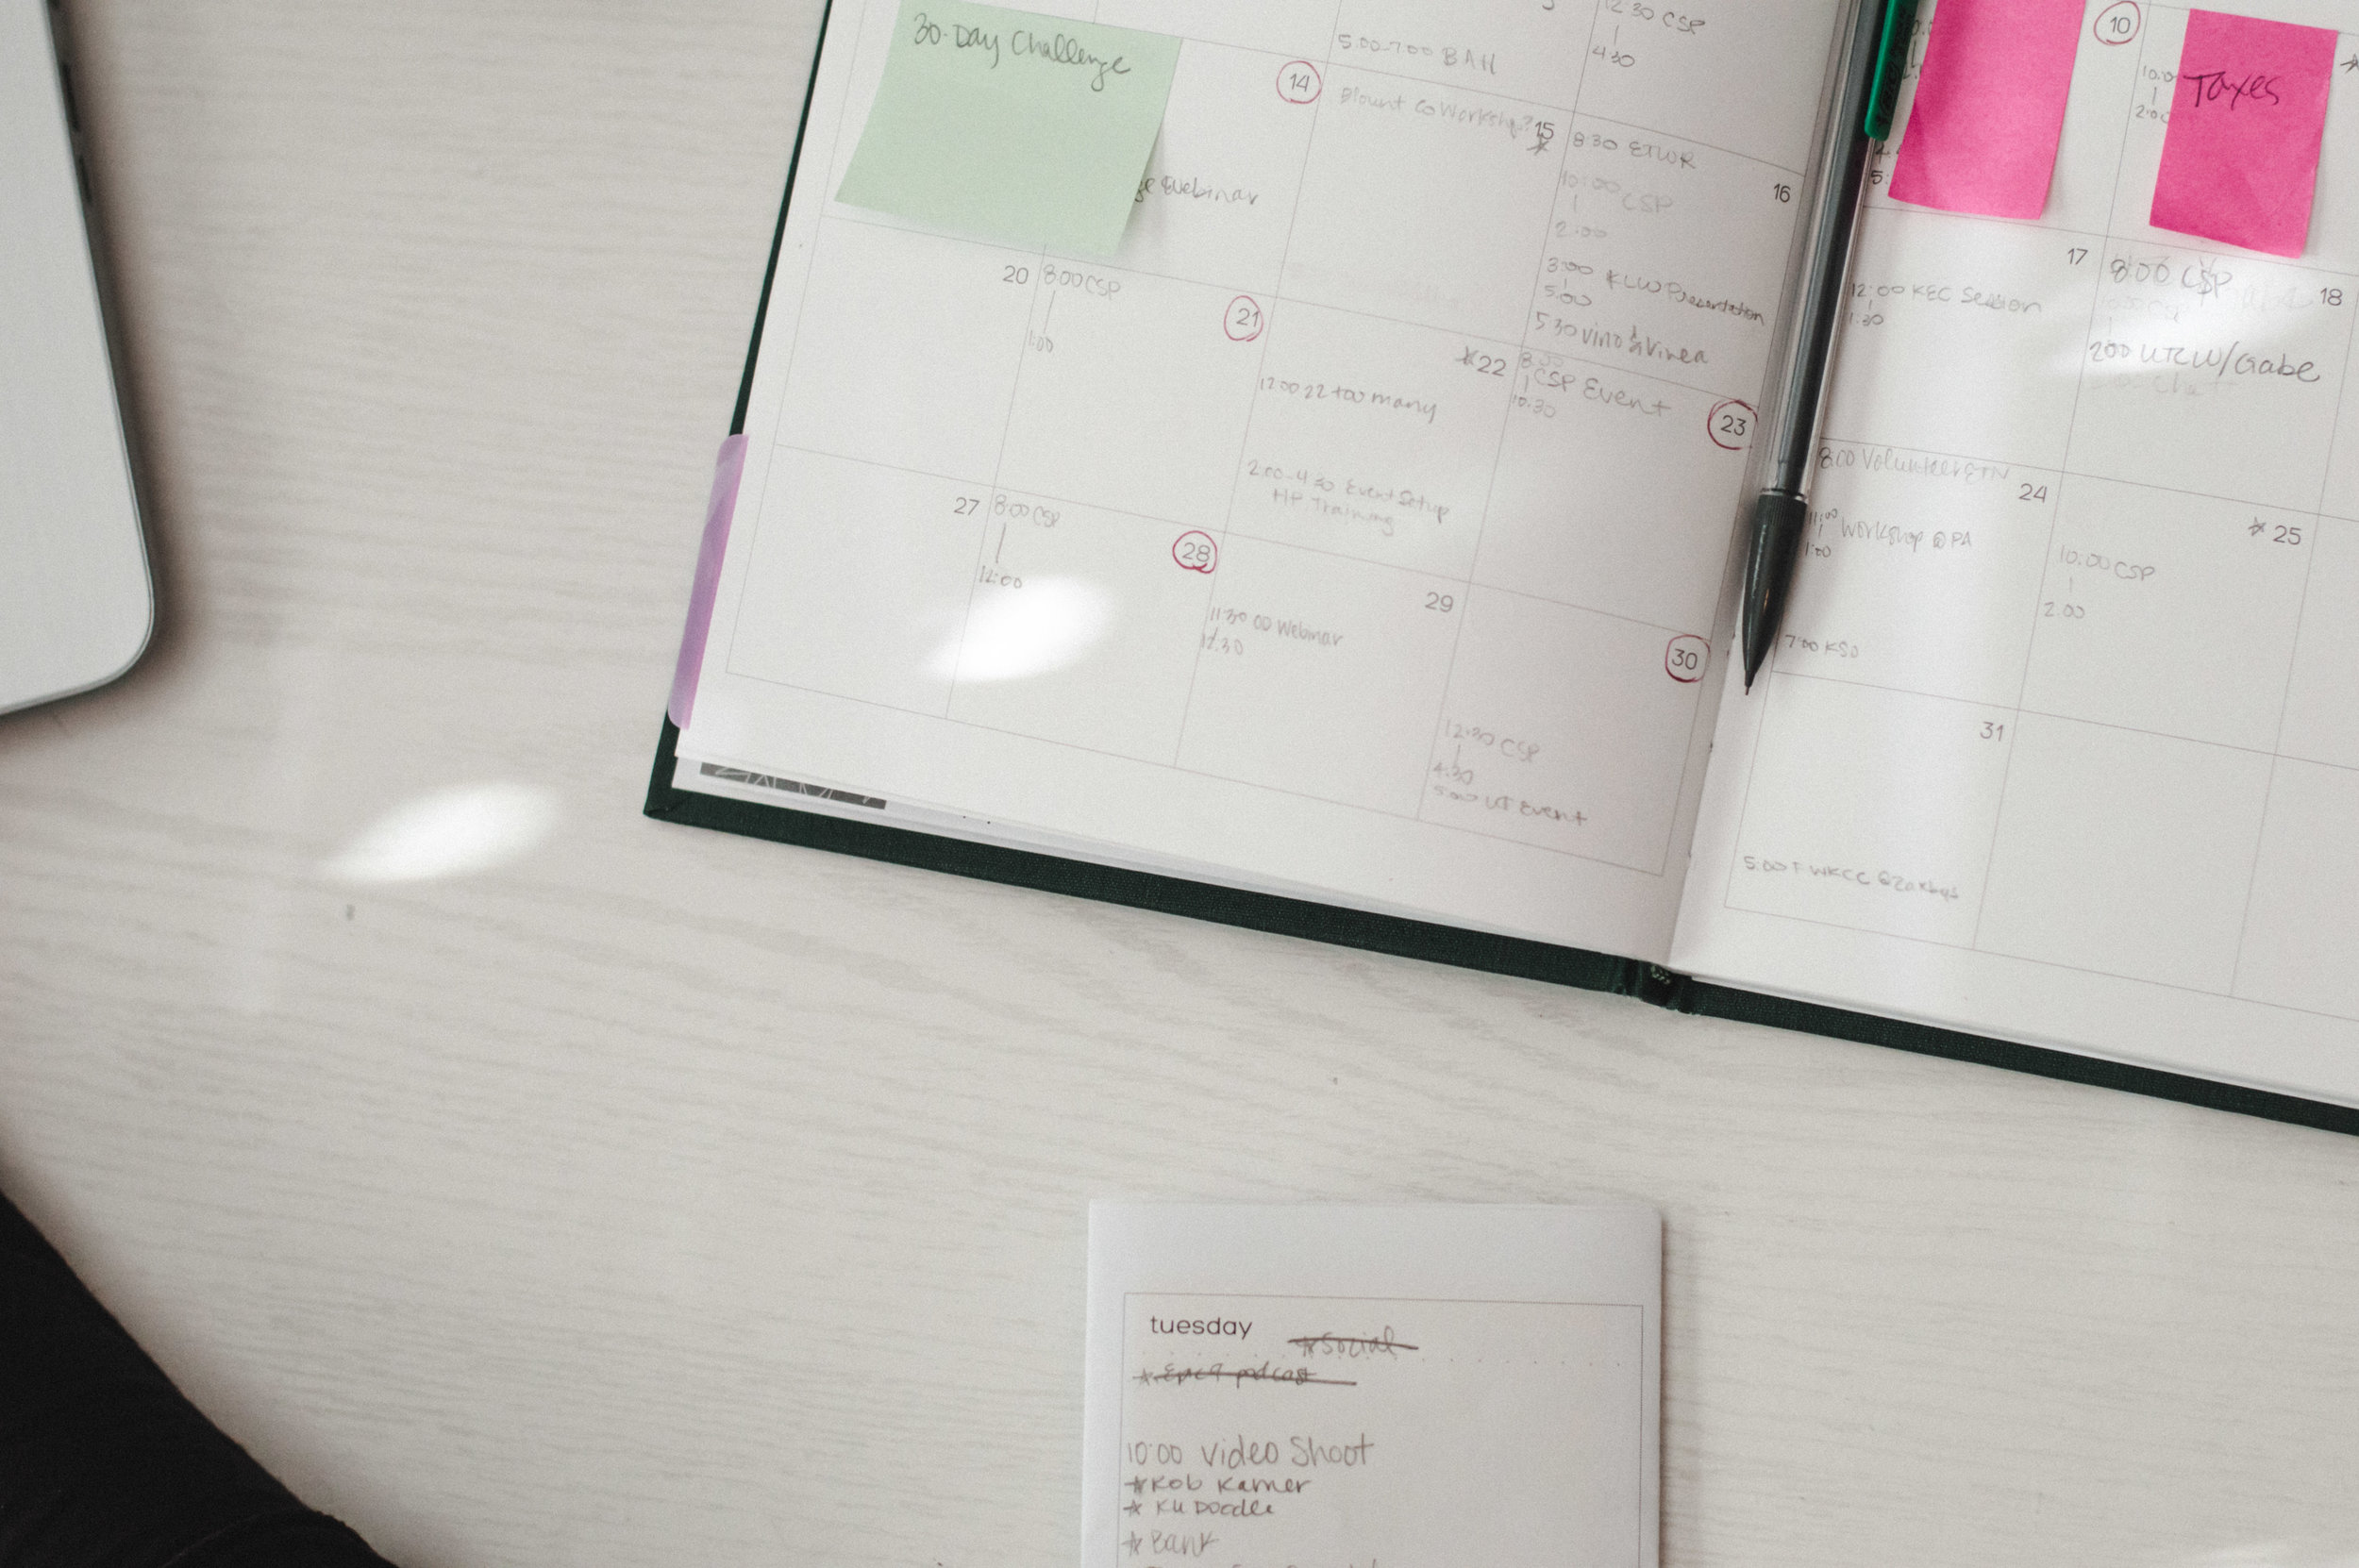 30-Day Challenge
5:00-7:00 BAH
12:30 CSP
4:30
14
Webinar
Blount Co Workshop?
15
8:30 ETWR
10:00 CSP
2:00
3:00 KLW Presentation
5:00
5:30 Vino & Vinea
16
10
10:0
2:00
Taxes
20
8:00 CSP
1:00
21
12:00 22 too many
2:00-4:30 Event Setup
HP Training
22
8:00
CSP Event
10:30
23
12:00 KEC Session
1:30
17
8:00 CSP
2:00 UTCW/Gabe
18
27
8:00 CSP
12:00
28
11:30 OO Webinar
12:30
29
12:30 CSP
4:30
5:00 UT Event
30
8:00 VolunteerETN
24
11:00 Workshop @ PA
1:00
7:00 KSO
10:00 CSP
2:00
25
31
5:00 F WKCC @Zaxbys
tuesday
*Social
podcast
10:00 Video Shoot
*Rob Karner
* KU Doodle
*Bank